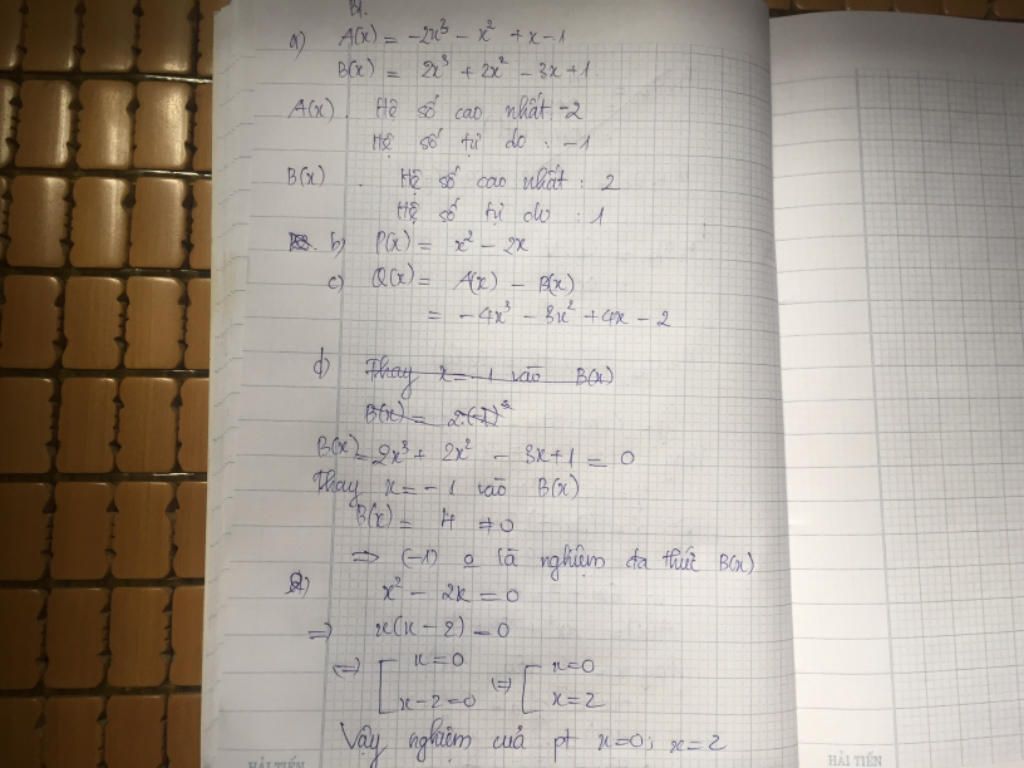 B1.
a) A(x) = -2x³ - x² + x - 1
B(x) = 2x³ + 2x² - 3x + 1
A(x). Hệ số cao nhất -2
Hệ số tự do : -1
B(x) . Hệ số cao nhất : 2
Hệ số tự do : 1
b) P(x) = x² - 2x
c) Q(x) = A(x) - B(x)
= -4x³ - 3x² + 4x - 2
d) Thay x = -1 vào B(x)
B(x) = 2.(-1)³
B(x) = 2x³ + 2x² - 3x + 1 = 0
Thay x = -1 vào B(x)
B(x) = 4 ≠ 0
=> (-1) o là nghiệm đa thức B(x)
x² - 2x = 0
=> x(x - 2) = 0
<=> [ x = 0 <=> [ x = 0
x - 2 = 0 x = 2
Vậy nghiệm của pt x = 0; x = 2
HẢI TIẾN HẢI TIẾN